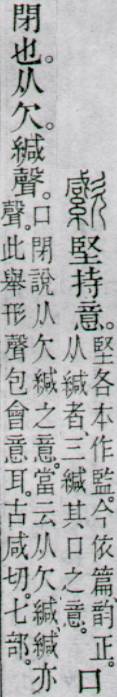 堅持意。
堅各本作監。今依篇、韵正。
从緘者三緘其口之意。
口
閉也。从欠。緘聲。
口閉說从欠緘之意。當云从欠緘、緘亦
聲。此舉形聲包會意耳。古咸切。七部。